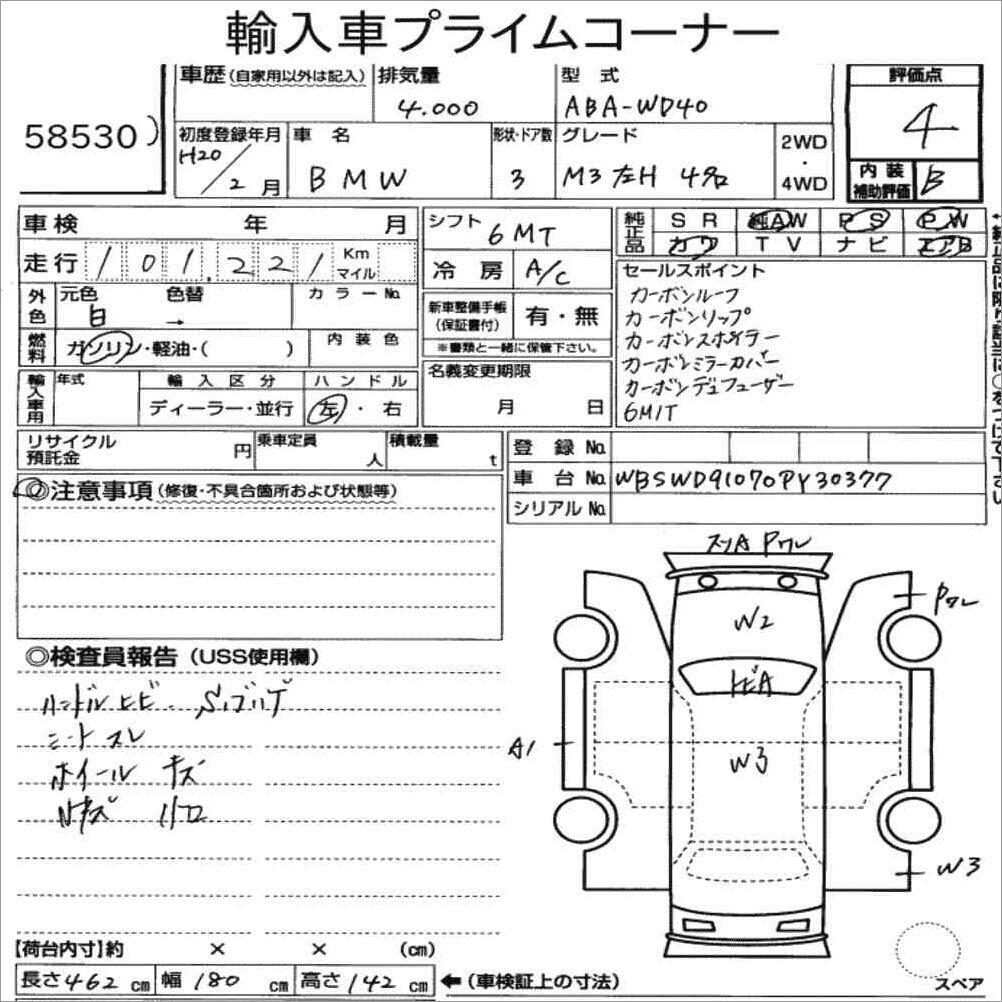 輸入車プライムコーナー
58530
車歴(自家用以外は記入)
排気量
4.000
型 式
ABA-WD40
評価点
4
初度登録年月
H20/2月
車 名
BMW
形状・ドア数
3
グレード
M3 左H 4名
2WD
・
4WD
内装
補助評価
B
車検 年 月
シフト
6MT
純正品
SR 純AW PS PW
カワ TV ナビ エアB
走行 101,221 Km マイル
冷 房 A/C
セールスポイント
カーボンルーフ
カーボンリップ
カーボンスポイラー
カーボンミラーカバー
カーボンデュフューザー
6MT
外色
元色 色替
白 →
カラーNo.
新車整備手帳
(保証書付)
有・無
※書類と一緒に保管下さい。
燃料
ガソリン・軽油・( )
内 装 色
輸入車用
年式
輸 入 区 分
ディーラー・並行
ハ ン ド ル
左・右
名義変更期限
月 日
リサイクル
預託金
円
乗車定員
人
積載量
t
登 録 No.
車 台 No. WBSWD91070PY30377
シリアル No.
◎注意事項(修復・不具合箇所および状態等)
スリA Pワレ
Pワレ
W2
トビA
A1
W3
W3
◎検査員報告(USS使用欄)
ハンドルヒビ
シートスレ
ホイール キズ
内キズ
【荷台内寸】約 × × (cm)
長さ462cm 幅180cm 高さ142cm ←(車検証上の寸法)
スペア